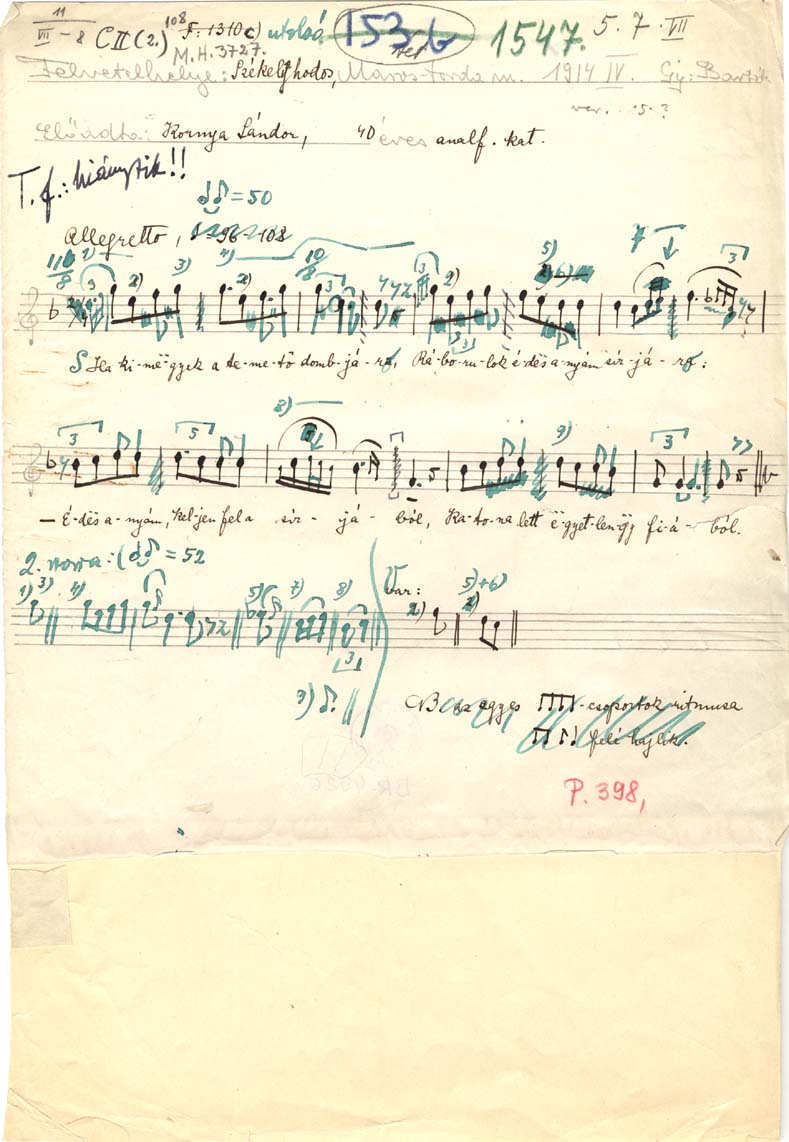 11
VII - 8 C II (2.) 108 F: 1310 c) utolsó 153 b 1547. 5. 7. VII
M. H. 3727.
Felvétel helye: Székelyhodos, Maros-Torda m. 1914 IV. Gy: Bartók
Előadta: Kornya Sándor, 40 éves analf. kat.
T. f.: hiányzik!!
= 50
Allegretto, = 96-108
S Ha ki-më-gyek a te-me-tő domb-já-ra, Rá-bo-ru-lok é-dës a-nyám sír-já-ra:
– É-dës a-nyám, kel-jen fel a sír-já-ból, Ka-to-na lett ë-gyet-len-ëgy fi-á-ból.
2. = 52
Var:
az egyes -csoportok ritmusa
felé hajlik.
P. 398,